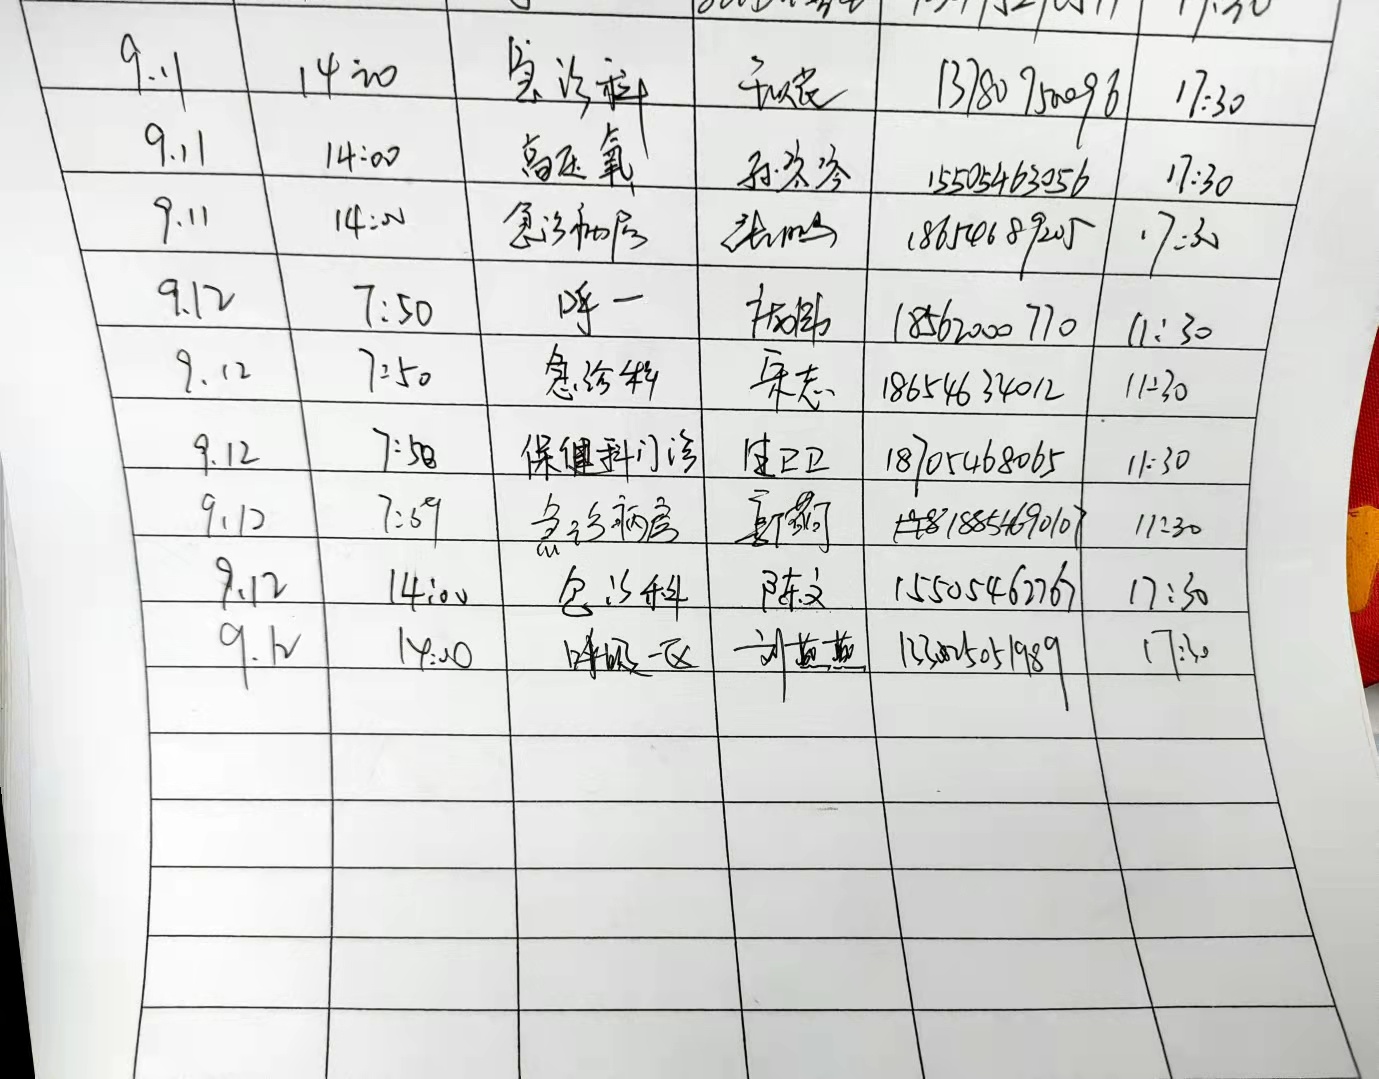 17:30
9.11 14:00 急诊科 13780750096 17:30
9.11 14:00 高压氧 孙岑岑 15505463056 17:30
9.11 14:00 急诊病房 张鸣 18654689205 17:30
9.12 7:50 呼一 18562000770 11:30
9.12 7:50 急诊科 宋志 18654634012 11:30
9.12 7:50 保健科门诊 生卫卫 18705468065 11:30
9.12 7:59 急诊病房 18854690107 11:30
9.12 14:00 急诊科 陈文 15505462767 17:30
9.12 14:00 呼吸一区 刘燕燕 17:30